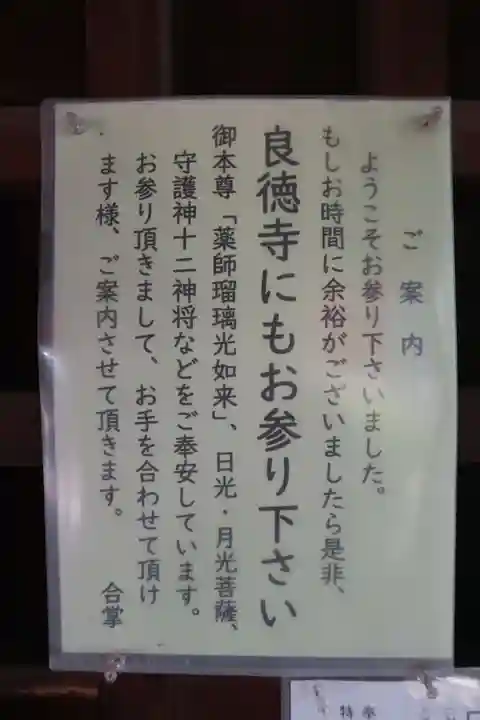 ご案内
ようこそお参り下さいました。
もしお時間に余裕がございましたら是非、
良徳寺にもお参り下さい
御本尊「薬師瑠璃光如来」、日光・月光菩薩、
守護神十二神将などをご奉安しています。
お参り頂きまして、お手を合わせて頂け
ます様、ご案内させて頂きます。
合掌
特奉